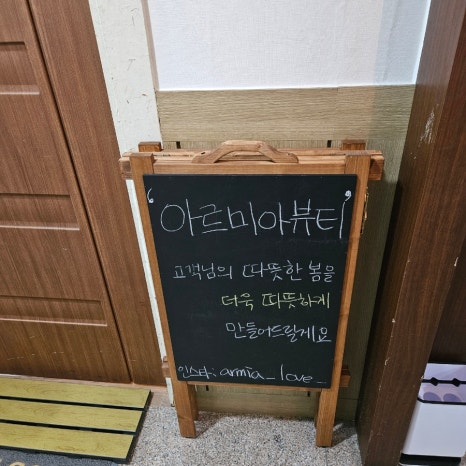 '아르미아뷰티'
고객님의 따뜻한 봄을
더욱 따뜻하게
만들어드릴게요
인스타: armia_love_